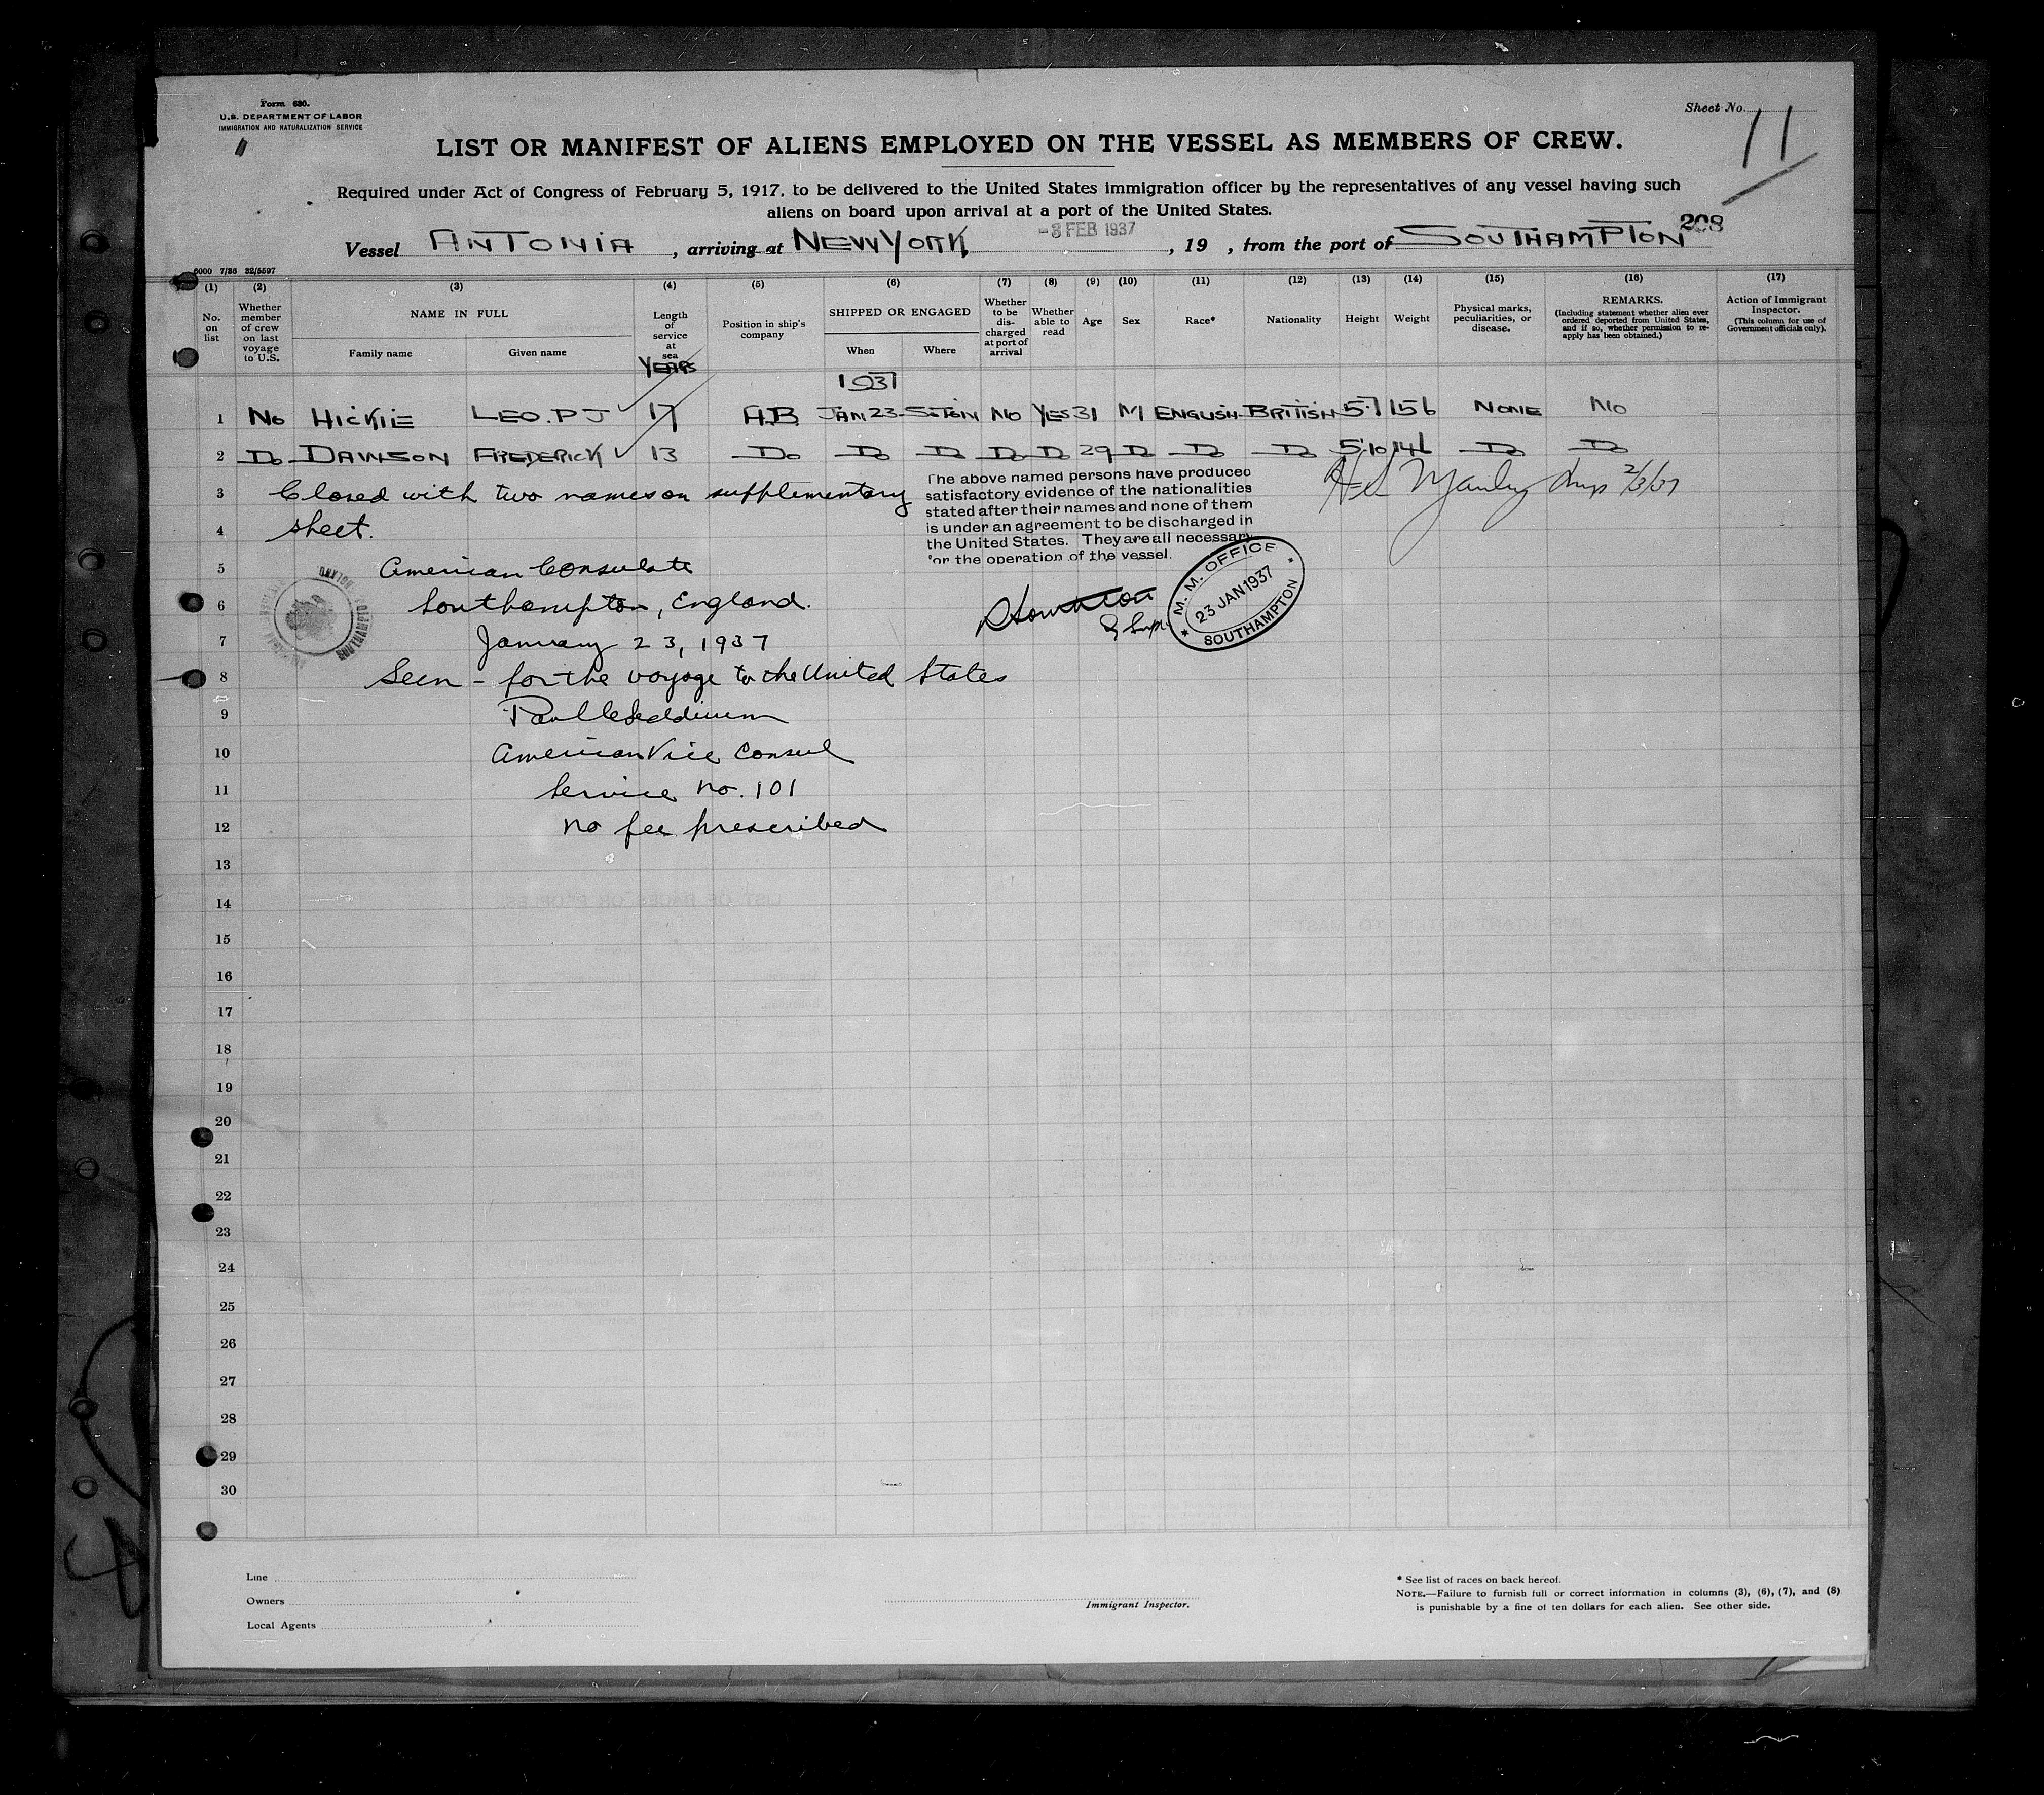 Form 630.
U.S. DEPARTMENT OF LABOR
IMMIGRATION AND NATURALIZATION SERVICE
Sheet No. 11
LIST OR MANIFEST OF ALIENS EMPLOYED ON THE VESSEL AS MEMBERS OF CREW.
Required under Act of Congress of February 5, 1917, to be delivered to the United States immigration officer by the representatives of any vessel having such
aliens on board upon arrival at a port of the United States.
208
Vessel ANTONIA, arriving at NEW YORK -8 FEB 1937, 19 , from the port of SOUTHAMPTON
6000 7/36 32/5597
(1) (2) (3) (4) (5) (6) (7) (8) (9) (10) (11) (12) (13) (14) (15) (16) (17)
No. on list
Whether member of crew on last voyage to U.S.
NAME IN FULL
Family name Given name
Length of service at sea
YEARS
Position in ship's company
SHIPPED OR ENGAGED
When Where
Whether to be discharged at port of arrival
Whether able to read
Age
Sex
Race*
Nationality
Height
Weight
Physical marks, peculiarities, or disease.
REMARKS.
(Including statement whether alien ever ordered deported from United States, and if so, whether permission to re-apply has been obtained.)
Action of Immigrant Inspector.
(This column for use of Government officials only).
1937
1 NO HICKIE LEO. P J 17 A.B JAN 23 S.TON NO YES 31 M ENGLISH BRITISH 5.7 156 NONE NO
2 DO DAWSON FREDERICK 13 DO DO DO DO DO 29 DO DO DO 5.10 146 DO DO
3 Closed with two names on supplementary
4 sheet.
The above named persons have produced
satisfactory evidence of the nationalities
stated after their names and none of them
is under an agreement to be discharged in
the United States. They are all necessary
for the operation of the vessel.
Manley Insp 2/3/37
5 American Consulate
6 Southampton, England.
7 January 23, 1937
M. M. OFFICE
23 JAN 1937
SOUTHAMPTON
8 Seen - for the voyage to the United States
9
10 American Vice Consul
11 Service No. 101
12 no fee prescribed
13
14
15
16
17
18
19
20
21
22
23
24
25
26
27
28
29
30
Line
Owners
Local Agents
Immigrant Inspector.
* See list of races on back hereof.
NOTE.—Failure to furnish full or correct information in columns (3), (6), (7), and (8)
is punishable by a fine of ten dollars for each alien. See other side.